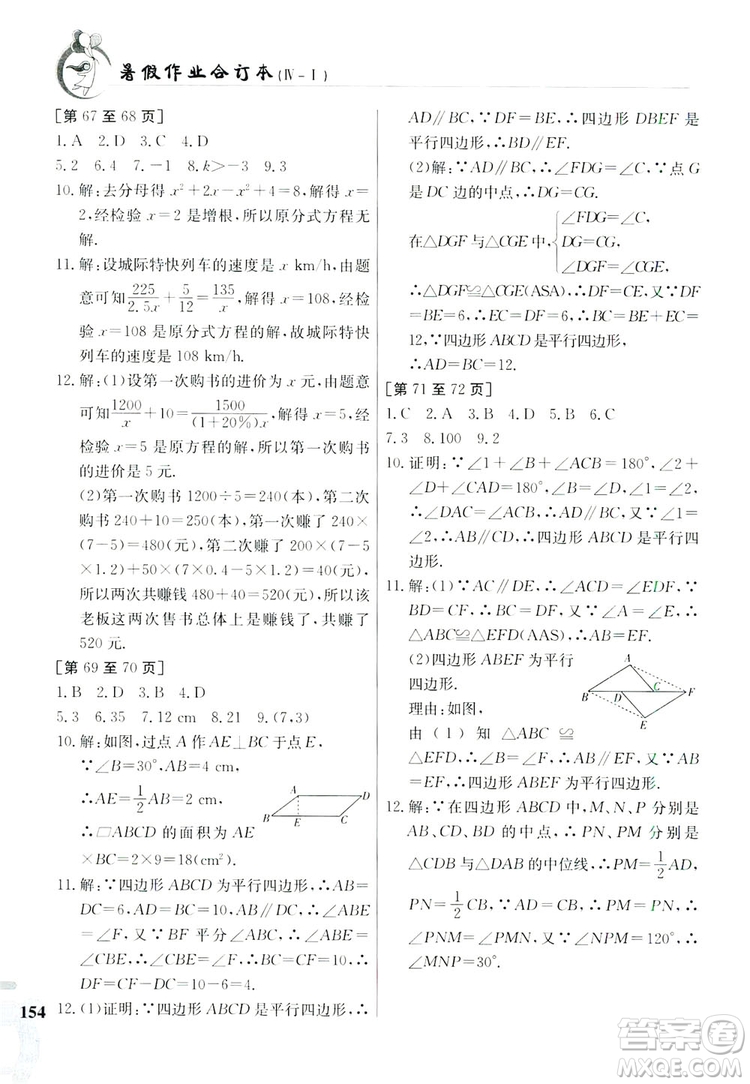 暑假作业合订本(Ⅳ-Ⅰ)
[第 67 至 68 页]
1.A 2.D 3.C 4.D
5.2 6.4 7.-1 8.k>-3 9.3
10.解:去分母得 x²+2x-x²+4=8,解得 x=
2,经检验 x=2 是增根,所以原分式方程无
解.
11.解:设城际特快列车的速度是 x km/h,由题
意可知 225/2.5x + 5/12 = 135/x,解得 x=108,经检
验 x=108 是原分式方程的解,故城际特快
列车的速度是 108 km/h.
12.解:(1)设第一次购书的进价为 x 元,由题意
可知 1200/x +10= 1500/(1+20%)x,解得 x=5,经
检验 x=5 是原方程的解,所以第一次购书
的进价是 5 元.
(2)第一次购书 1200÷5=240(本),第二次
购书 240+10=250(本),第一次赚了 240×
(7-5)=480(元),第二次赚了 200×(7-5
×1.2)+50×(7×0.4-5×1.2)=40(元),
所以两次共赚钱 480+40=520(元),所以该
老板这两次售书总体上是赚钱了,共赚了
520 元.
[第 69 至 70 页]
1.B 2.D 3.C 4.B
5.3 6.35 7.12 cm 8.21 9.(7,3)
10.解:如图,过点 A 作 AE⊥BC 于点 E,
∵∠B=30°,AB=4 cm,
∴AE=1/2AB=2 cm.
∴□ABCD 的面积为 AE
×BC=2×9=18(cm²).
A D
B E C
11.解:∵四边形 ABCD 为平行四边形,∴AB=
DC=6,AD=BC=10,AB∥DC,∴∠ABE
=∠F,又∵BF 平分∠ABC,∴∠ABE=
∠CBE,∴∠CBF=∠F,∴BC=CF,∴
DF=CF-DC=10-6=4.
12.(1)证明:∵四边形 ABCD 是平行四边形,∴
AD∥BC,∵DF=BE,∴四边形 DBEF 是
平行四边形,∴BD∥EF.
(2)解:∵AD∥BC,∴∠FDG=∠C,∵点 G
是 DC 边的中点,∴DG=CG.
在△DGF 与△CGE 中,{∠FDG=∠C
DG=CG
∠FGD=∠EGC,
∴△DGF≌△CGE(ASA),∴DF=CE,又∵DF
=BE=6,∴CE=DF=6,∴BC=BE+CE=
12,∵四边形 ABCD 是平行四边形,
∴AD=BC=12.
[第 71 至 72 页]
1.C 2.A 3.A 4.D 5.B 6.C
7.3 8.100 9.2
10.证明:∵∠1+∠B+∠ACB=180°,∠2+
∠D+∠CAD=180°,∠B=∠D,∠1=∠2,
∴∠DAC=∠ACB,∴AD∥BC,又∵∠1=
∠2,∴AB∥CD,∴四边形 ABCD 是平行四
边形.
11.解:(1)∵AC∥DE,∴∠ACD=∠EDF,∵
BD=CF,∴BC=DF,又∵∠A=∠E,
∴△ABC≌△EFD(AAS),∴AB=EF.
(2)四边形 ABEF 为平行
四边形.
理由:如图,
由(1)知△ABC≌
△EFD,∴∠B=∠F,∴AB∥EF,又∵AB=
EF,∴四边形 ABEF 为平行四边形.
A
B D C F
E
12.解:∵在四边形 ABCD 中,M、N、P 分别是
AB、CD、BD 的中点,∴PN、PM 分别是
△CDB 与△DAB 的中位线,∴PM=1/2AD,
PN=1/2CB,∵AD=CB,∴PM=PN,∴
△PMN 是等腰三角形,∵∠MPN=120°,∴
∠PMN=30°.
154
答案圈